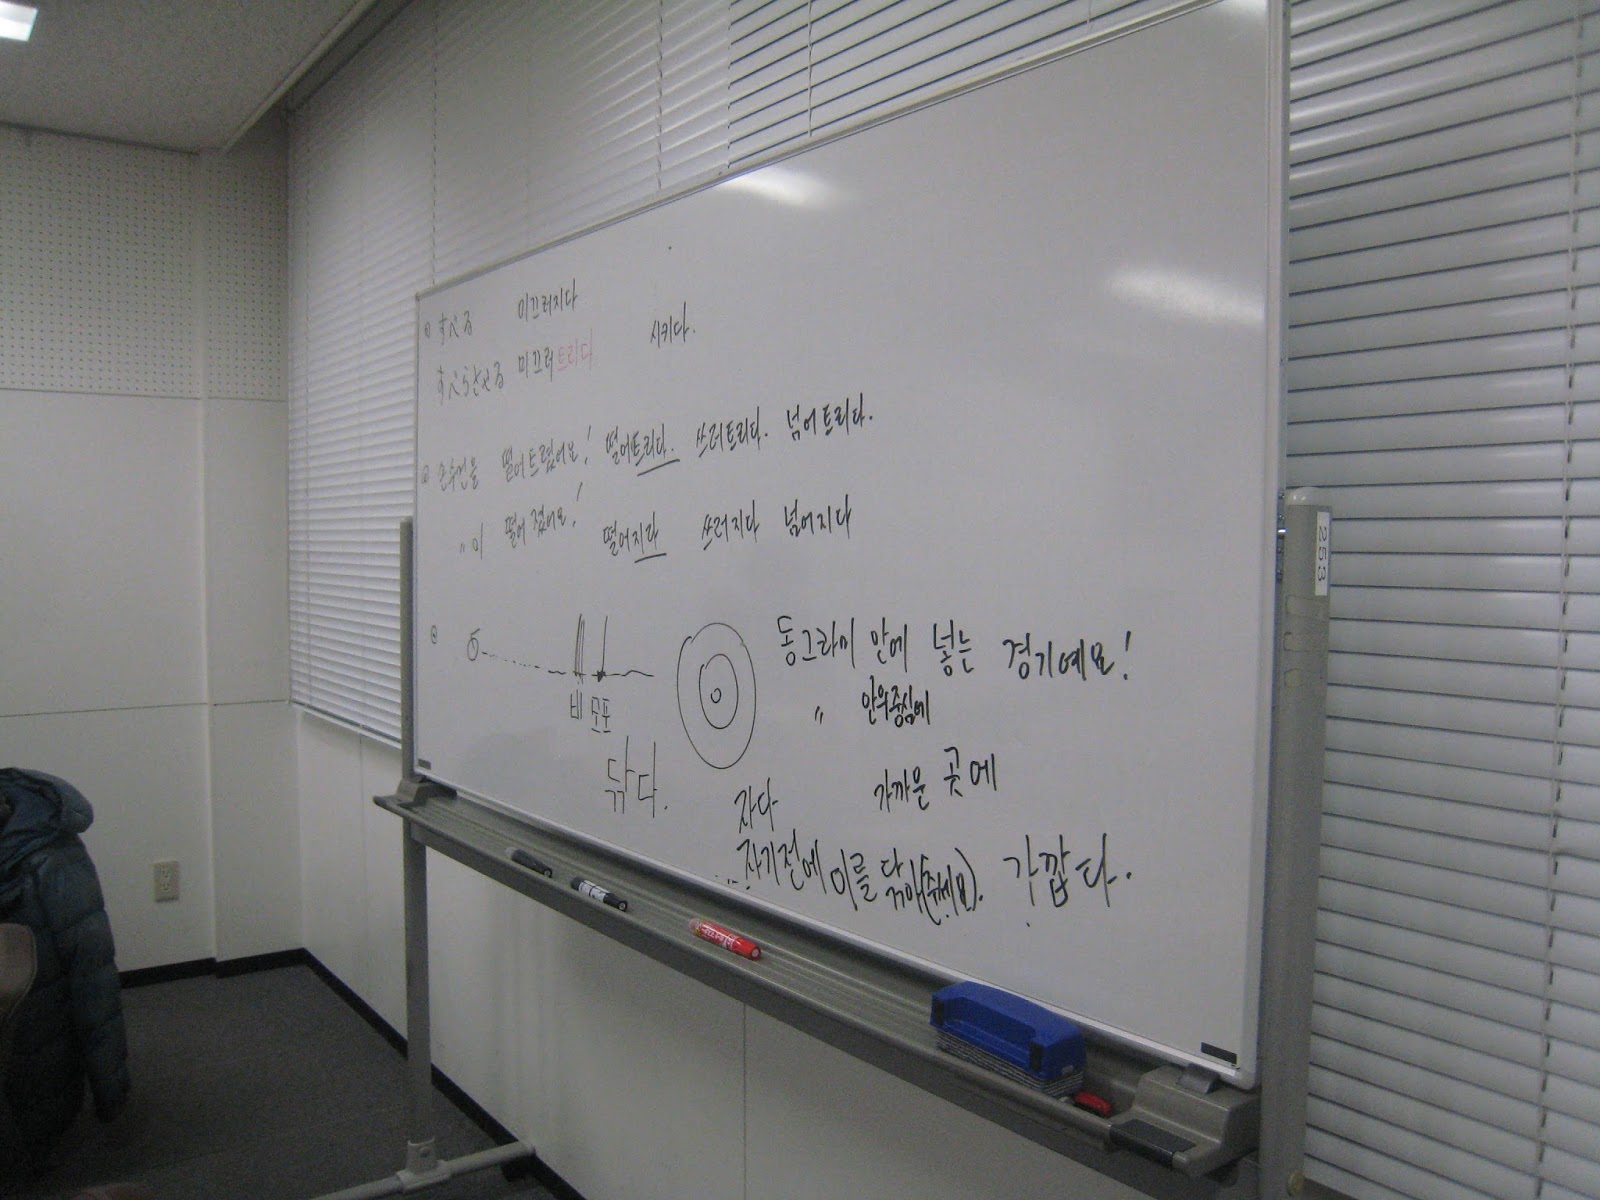 ① すべる 미끄러지다
すべらせる 미끄러트리다 시키다.
② 손수건을 떨어트렸어요! 떨어트리다. 쓰러트리다. 넘어트리다.
〃이 떨어졌어요! 떨어지다 쓰러지다 넘어지다
③
비 모포
동그라미 안에 넣는 경기예요!
〃 안의중심에
닦다.
가까운 곳에
자다
자기전에 이를 닦아(주세요). 가깝다.
253